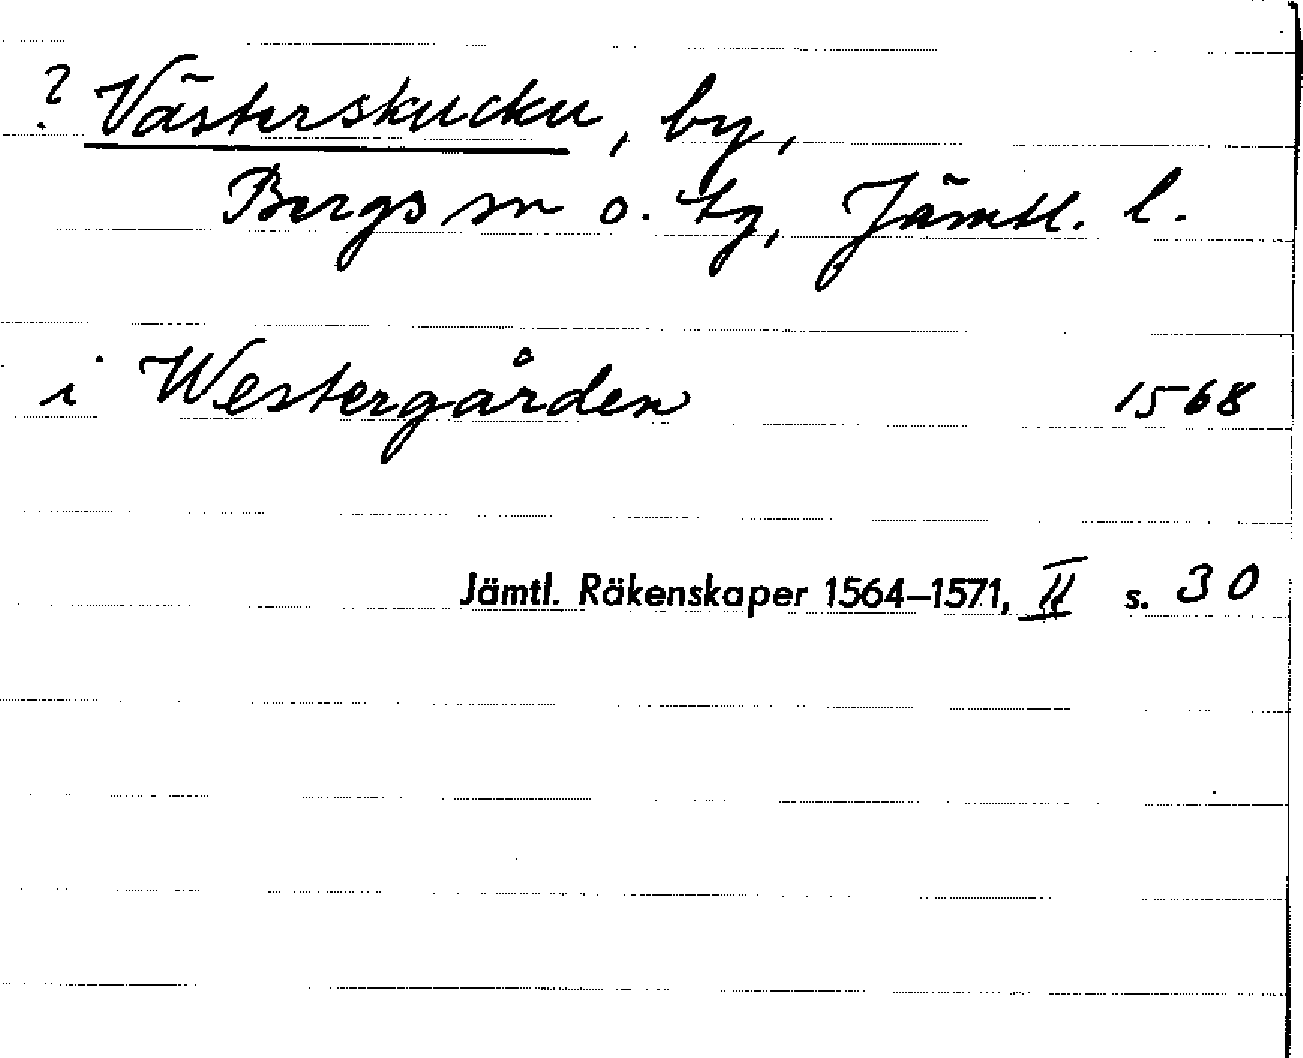 ? Västerskucku, by,
Bergs sn o. tg, Jämtl. l.
i Westergården 1568
Jämtl. Räkenskaper 1564–1571, II s. 30